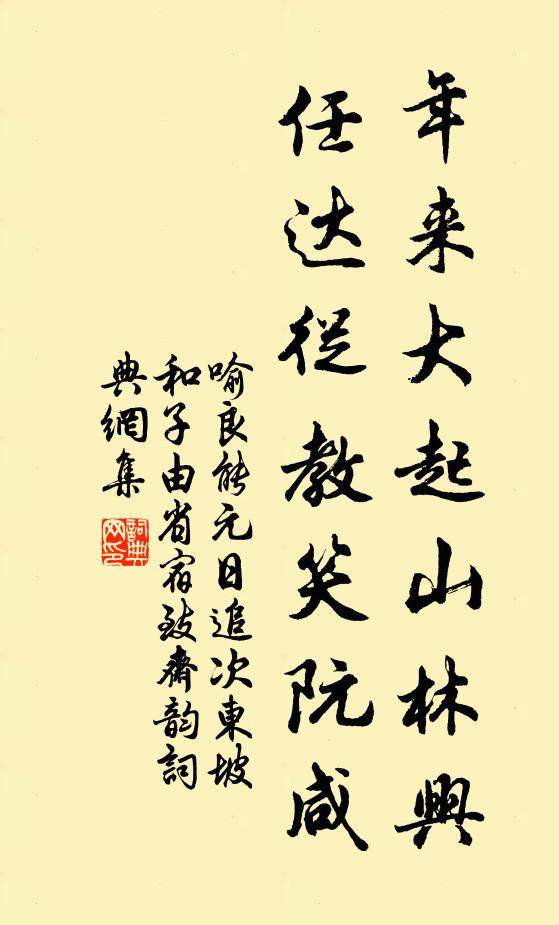 年来大起山林興
任达從教笑阮咸
喻良能元日追次東坡
和子由省宿致齋韵詞
典網集
詞典
网印